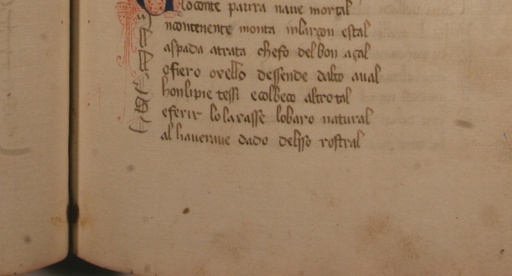 loconte paura naue mortal
ncontenente monta inlarçon estal
aspada atrata chefo delbon açal
ofiero oxello dessende dalto aual
honlipie tessi ecolbeco altrotal
eferir lo larasse lobaro natural
al haueraue dado delsso rostral